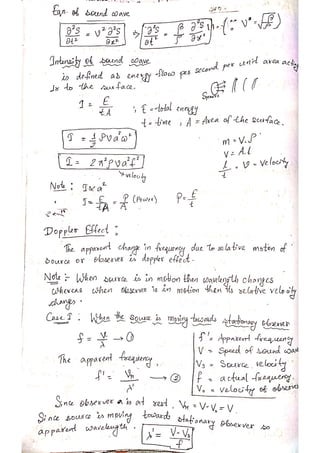 Eqn. of sound wave
∂²s/∂t² = v² ∂²s/∂x² ⇒ ∂²s/∂t² = β/ρ ∂²s/∂x² (∵ v = √(β/ρ))
Intensity of sound wave
is defined as energy flow per second per unit area acting
Lr to the surface.
Source
I = E/tA ; E = total energy
t = time, A = Area of the surface.
I = 1/2 ρva²ω²
m = V.ρ
V = A.l
I = 2π²ρva²f²
l/t = v = velocity
velocity
Note: I∝a²
I = E/tA = P/A (Power) P = E/t
Doppler Effect:
The apparent change in frequency due to relative motion of
source or observer is doppler effect.
Note :- When source is in motion then wavelength changes
whereas when observer is in motion then its relative velocity
changes.
Case I. When the source is moving towards stationary observer
f = V/λ → ①
f' = Apparent frequency
V = Speed of sound wave
The apparent frequency,
Vs = Source velocity
f' = Vn/λ' → ②
f = actual frequency.
Vo = velocity of observer
Since observer is at rest, Vn = V-Vo = V
Since source is moving towards stationary observer so
apparent wavelength, λ' = V-Vs/f